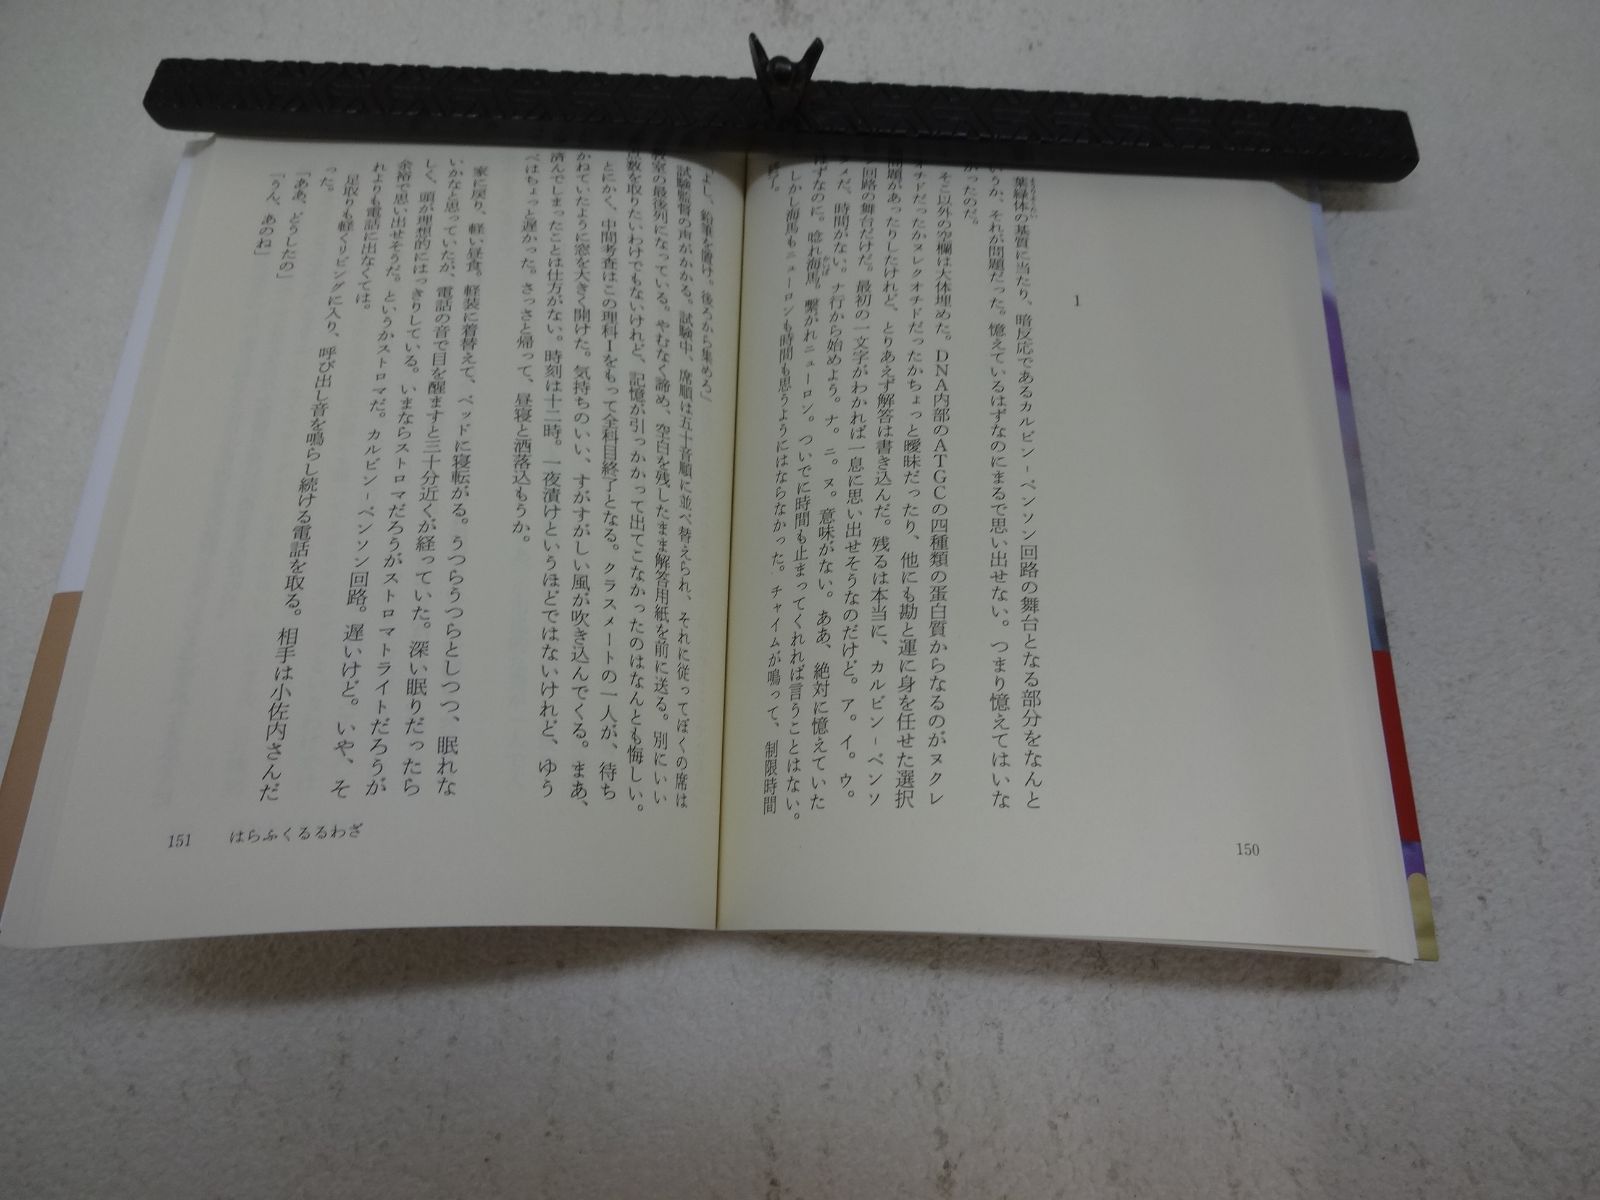 1
葉緑体の基質に当たり、暗反応であるカルビン－ベンソン回路の舞台となる部分をなんと
いうか、それが問題だった。憶えているはずなのにまるで思い出せない。つまり憶えてはいな
かったのだ。
そこ以外の空欄は大体埋めた。DNA内部のATGCの四種類の蛋白質からなるのがヌクレ
オチドだったかヌレクオチドだったかちょっと曖昧だったり、他にも勘と運に身を任せた選択
問題があったりしたけれど、とりあえず解答は書き込んだ。残るは本当に、カルビン－ベンソ
ン回路の舞台だけだ。最初の一文字がわかれば一息に思い出せそうなのだけど。ア。イ。ウ。
メだ、時間がない。ナ行から始めよう。ナ。ニ。ヌ。意味がない。ああ、絶対に憶えていた
はずなのに。唸れ海馬。繋がれニューロン。ついでに時間も止まってくれれば言うことはない。
しかし海馬もニューロンも時間も思うようにはならなかった。チャイムが鳴って、制限時間
終了。
150
よし、鉛筆を置け。後ろから集めろ」
試験監督の声がかかる。試験中、席順は五十音順に並べ替えられ、それに従ってぼくの席は
教室の最後列になっている。やむなく諦め、空白を残したまま解答用紙を前に送る。別にいい
点数を取りたいわけでもないけれど、記憶が引っかかって出てこなかったのはなんとも悔しい。
とにかく、中間考査はこの理科Ⅰをもって全科目終了となる。クラスメートの一人が、待ち
かねていたように窓を大きく開けた。気持ちのいい、すがすがしい風が吹き込んでくる。まあ、
済んでしまったことは仕方がない。時刻は十二時。一夜漬けというほどではないけれど、ゆう
べはちょっと遅かった。さっさと帰って、昼寝と洒落込もうか。
家に戻り、軽い昼食。軽装に着替えて、ベッドに寝転がる。うつらうつらとしつつ、眠れな
いかなと思っていたが、電話の音で目を醒ますと三十分近くが経っていた。深い眠りだったら
しく、頭が理想的にはっきりしている。いまならストロマだろうがストロマトライトだろうが
余裕で思い出せそうだ。というかストロマだ。カルビン－ベンソン回路。遅いけど。いや、そ
れよりも電話に出なくては。
足取りも軽くリビングに入り、呼び出し音を鳴らし続ける電話を取る。相手は小佐内さんだ
った。
「ああ、どうしたの」
「うん、あのね」
151 はらふくるるわざ